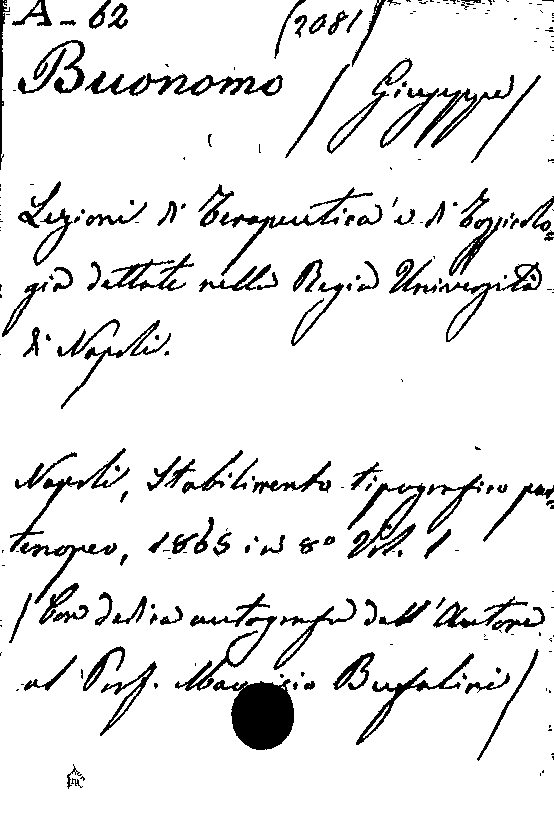 A - 62 (2081)
Buonomo (Giuseppe)
Lezioni di Terapeutica e di Tossicolo=
gia dettate nella Regia Università
di Napoli.
Napoli, Stabilimento tipografico par=
tenopeo, 1865 in 8° Vol. 1
(Con dedica autografa dell'Autore
al Prof. Maurizio Bufalini)